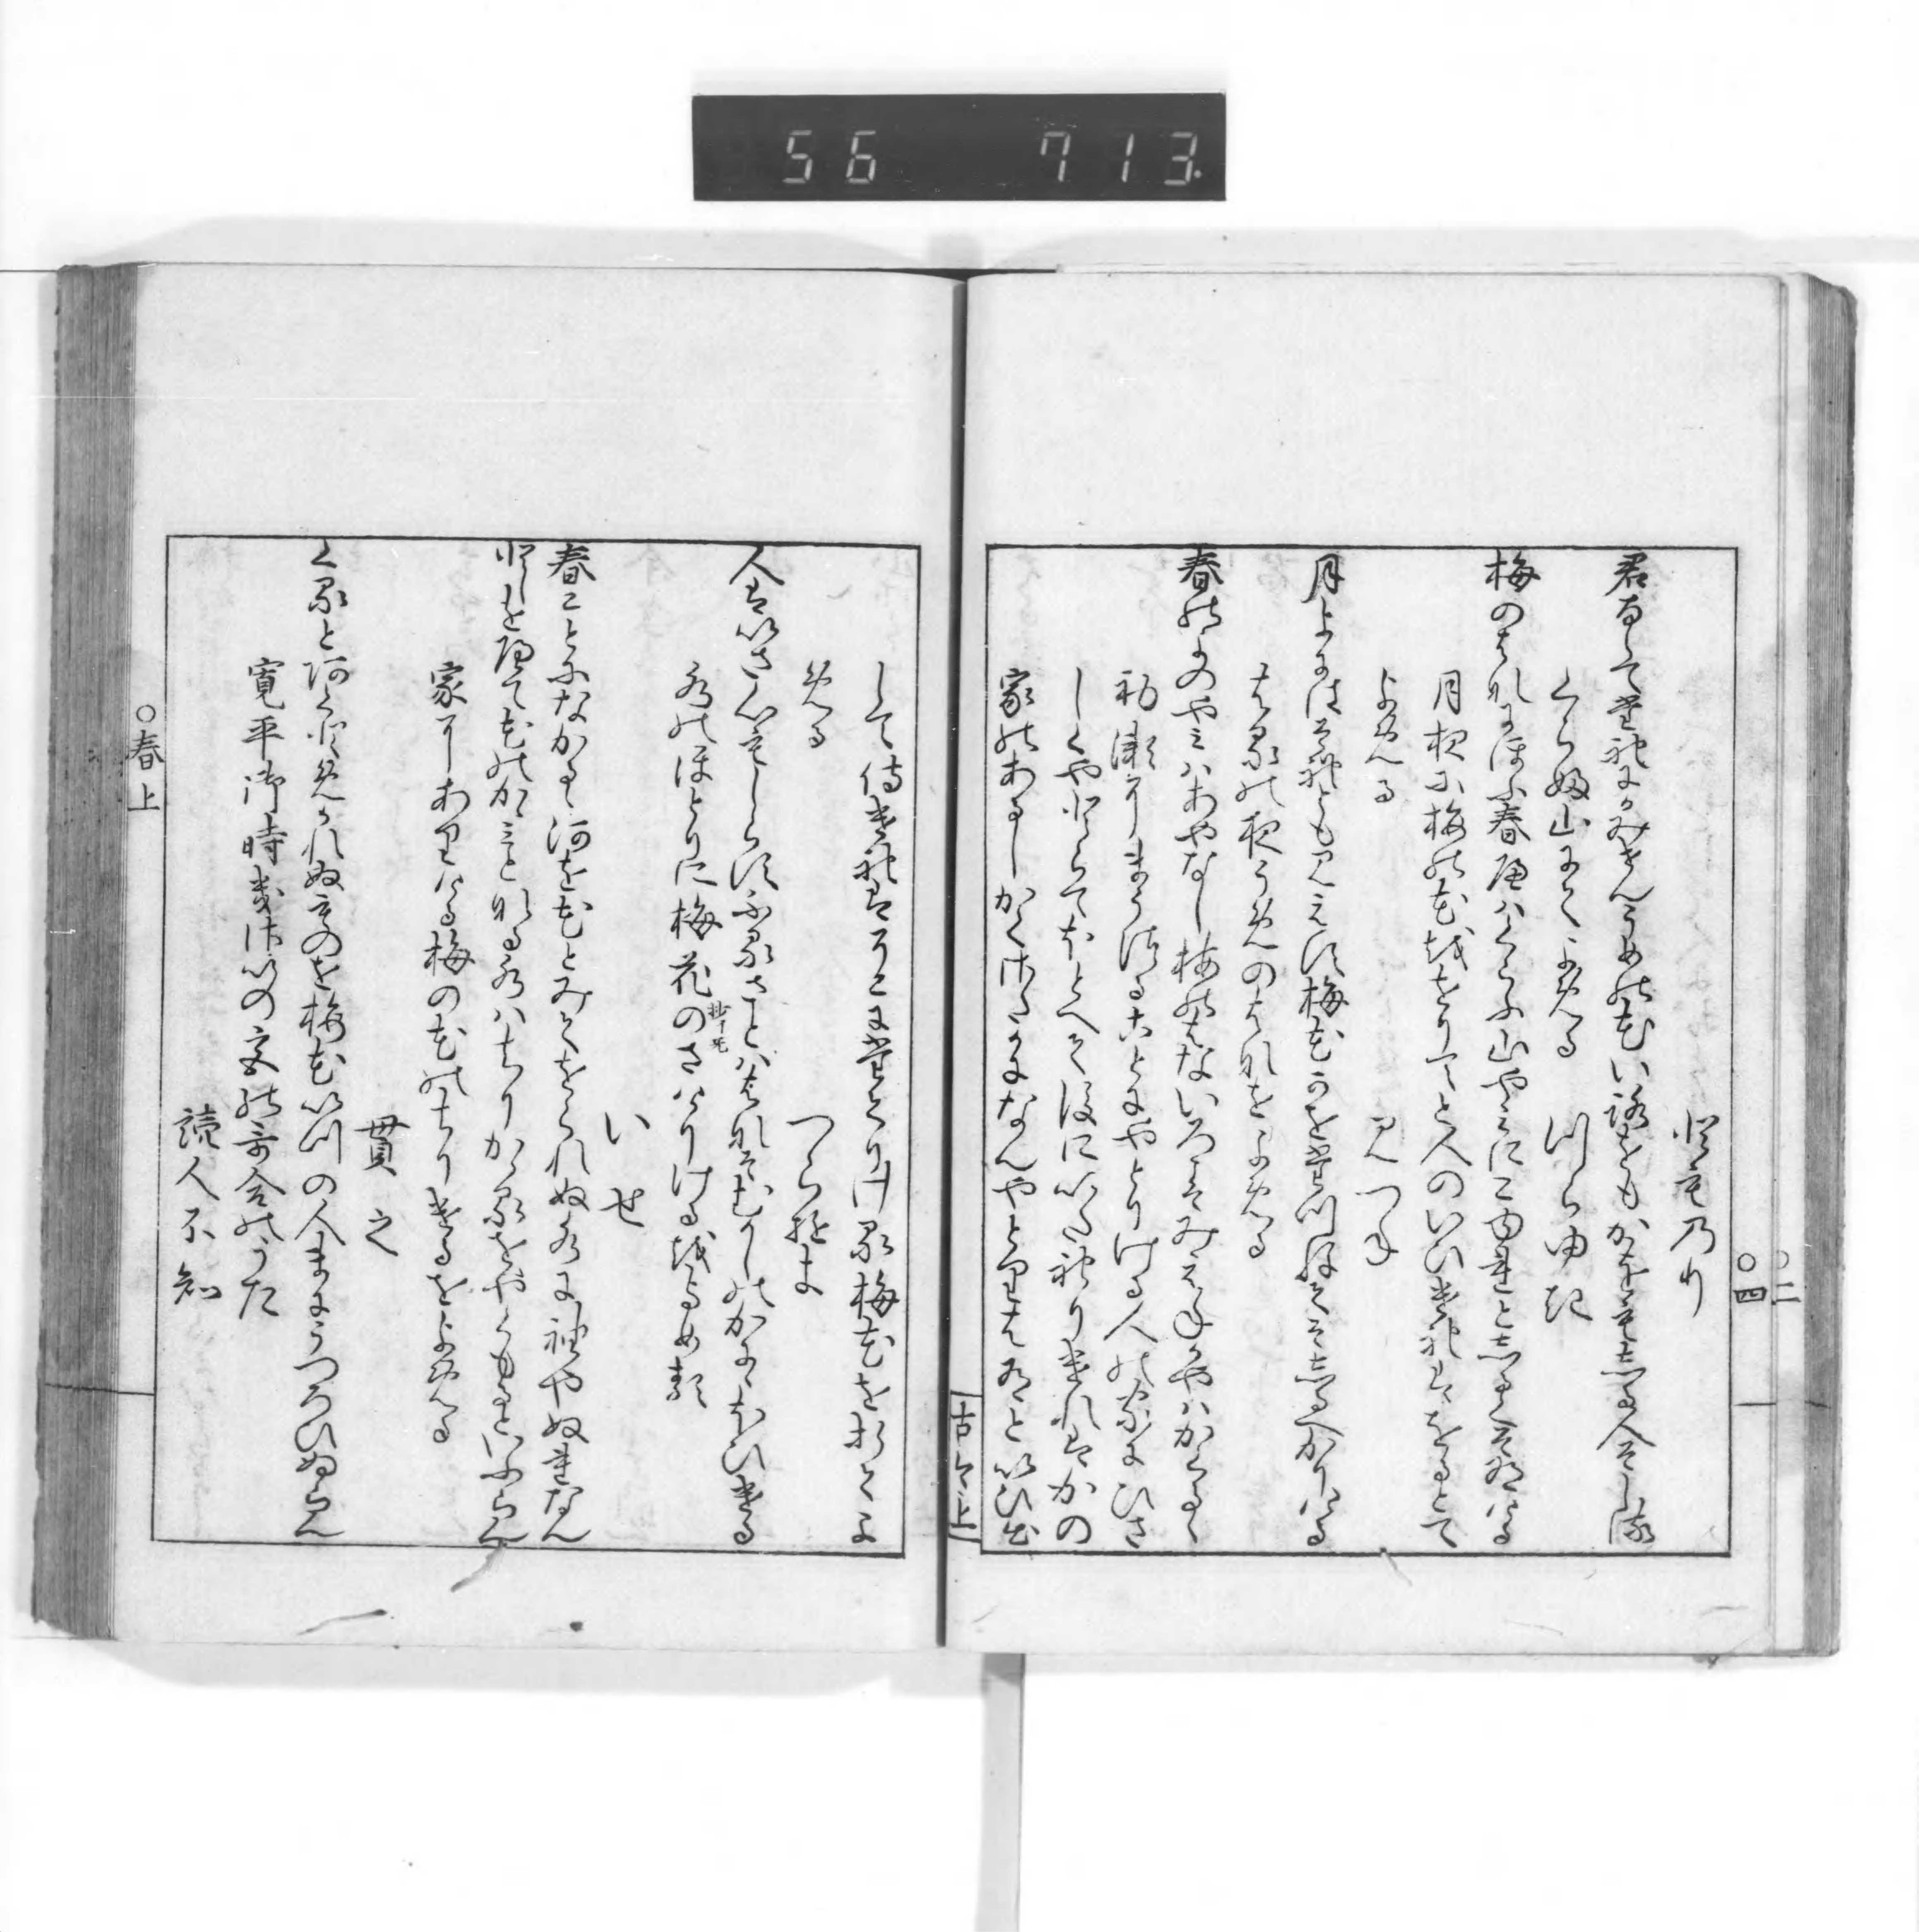 56 713
○二
○四
とものり
君ならて誰にかみせんうめの花い路をもかをもしる人そしる
くらふ山にてよめる つらゆき
梅のはなにほふ春へはくらふ山やみにこゆれとしるくそ有ける
月夜に梅の花をおりてと人のいひけれはをるとて
よめる みつね
月よにはそれともみえす梅花かを尋てそしるへかりける
はるの夜うめのはなをよめる
春の夜のやみはあやなし梅のはないろこそみえねかやはかくるゝ
初瀬にまうつることにやとりける人の家にひさ
しくやとらてほとへて後にいたれりけれはかの
家のあるしかくさたかになんやとりはあると いひ出
古今上
して侍けれはそこにたてりける梅花をおりてよ
める つらゆき
人はいさ心もしらすふるさとは花そむかしのかににほひける
水のほとりに梅花のさけりけるをよめる
いせ
春ことになかるゝ河を花とみておられぬ水に袖やぬれなん
年をへて花のかゝみとなる水はちりかゝるをやくもるといふらん
家にありける梅の花のちりけるをよめる
貫之
くるとあくとめかれぬものを梅花いつの人まにうつろひぬらん
寛平御時きさいの宮の哥合のうた
読人不知
○春上